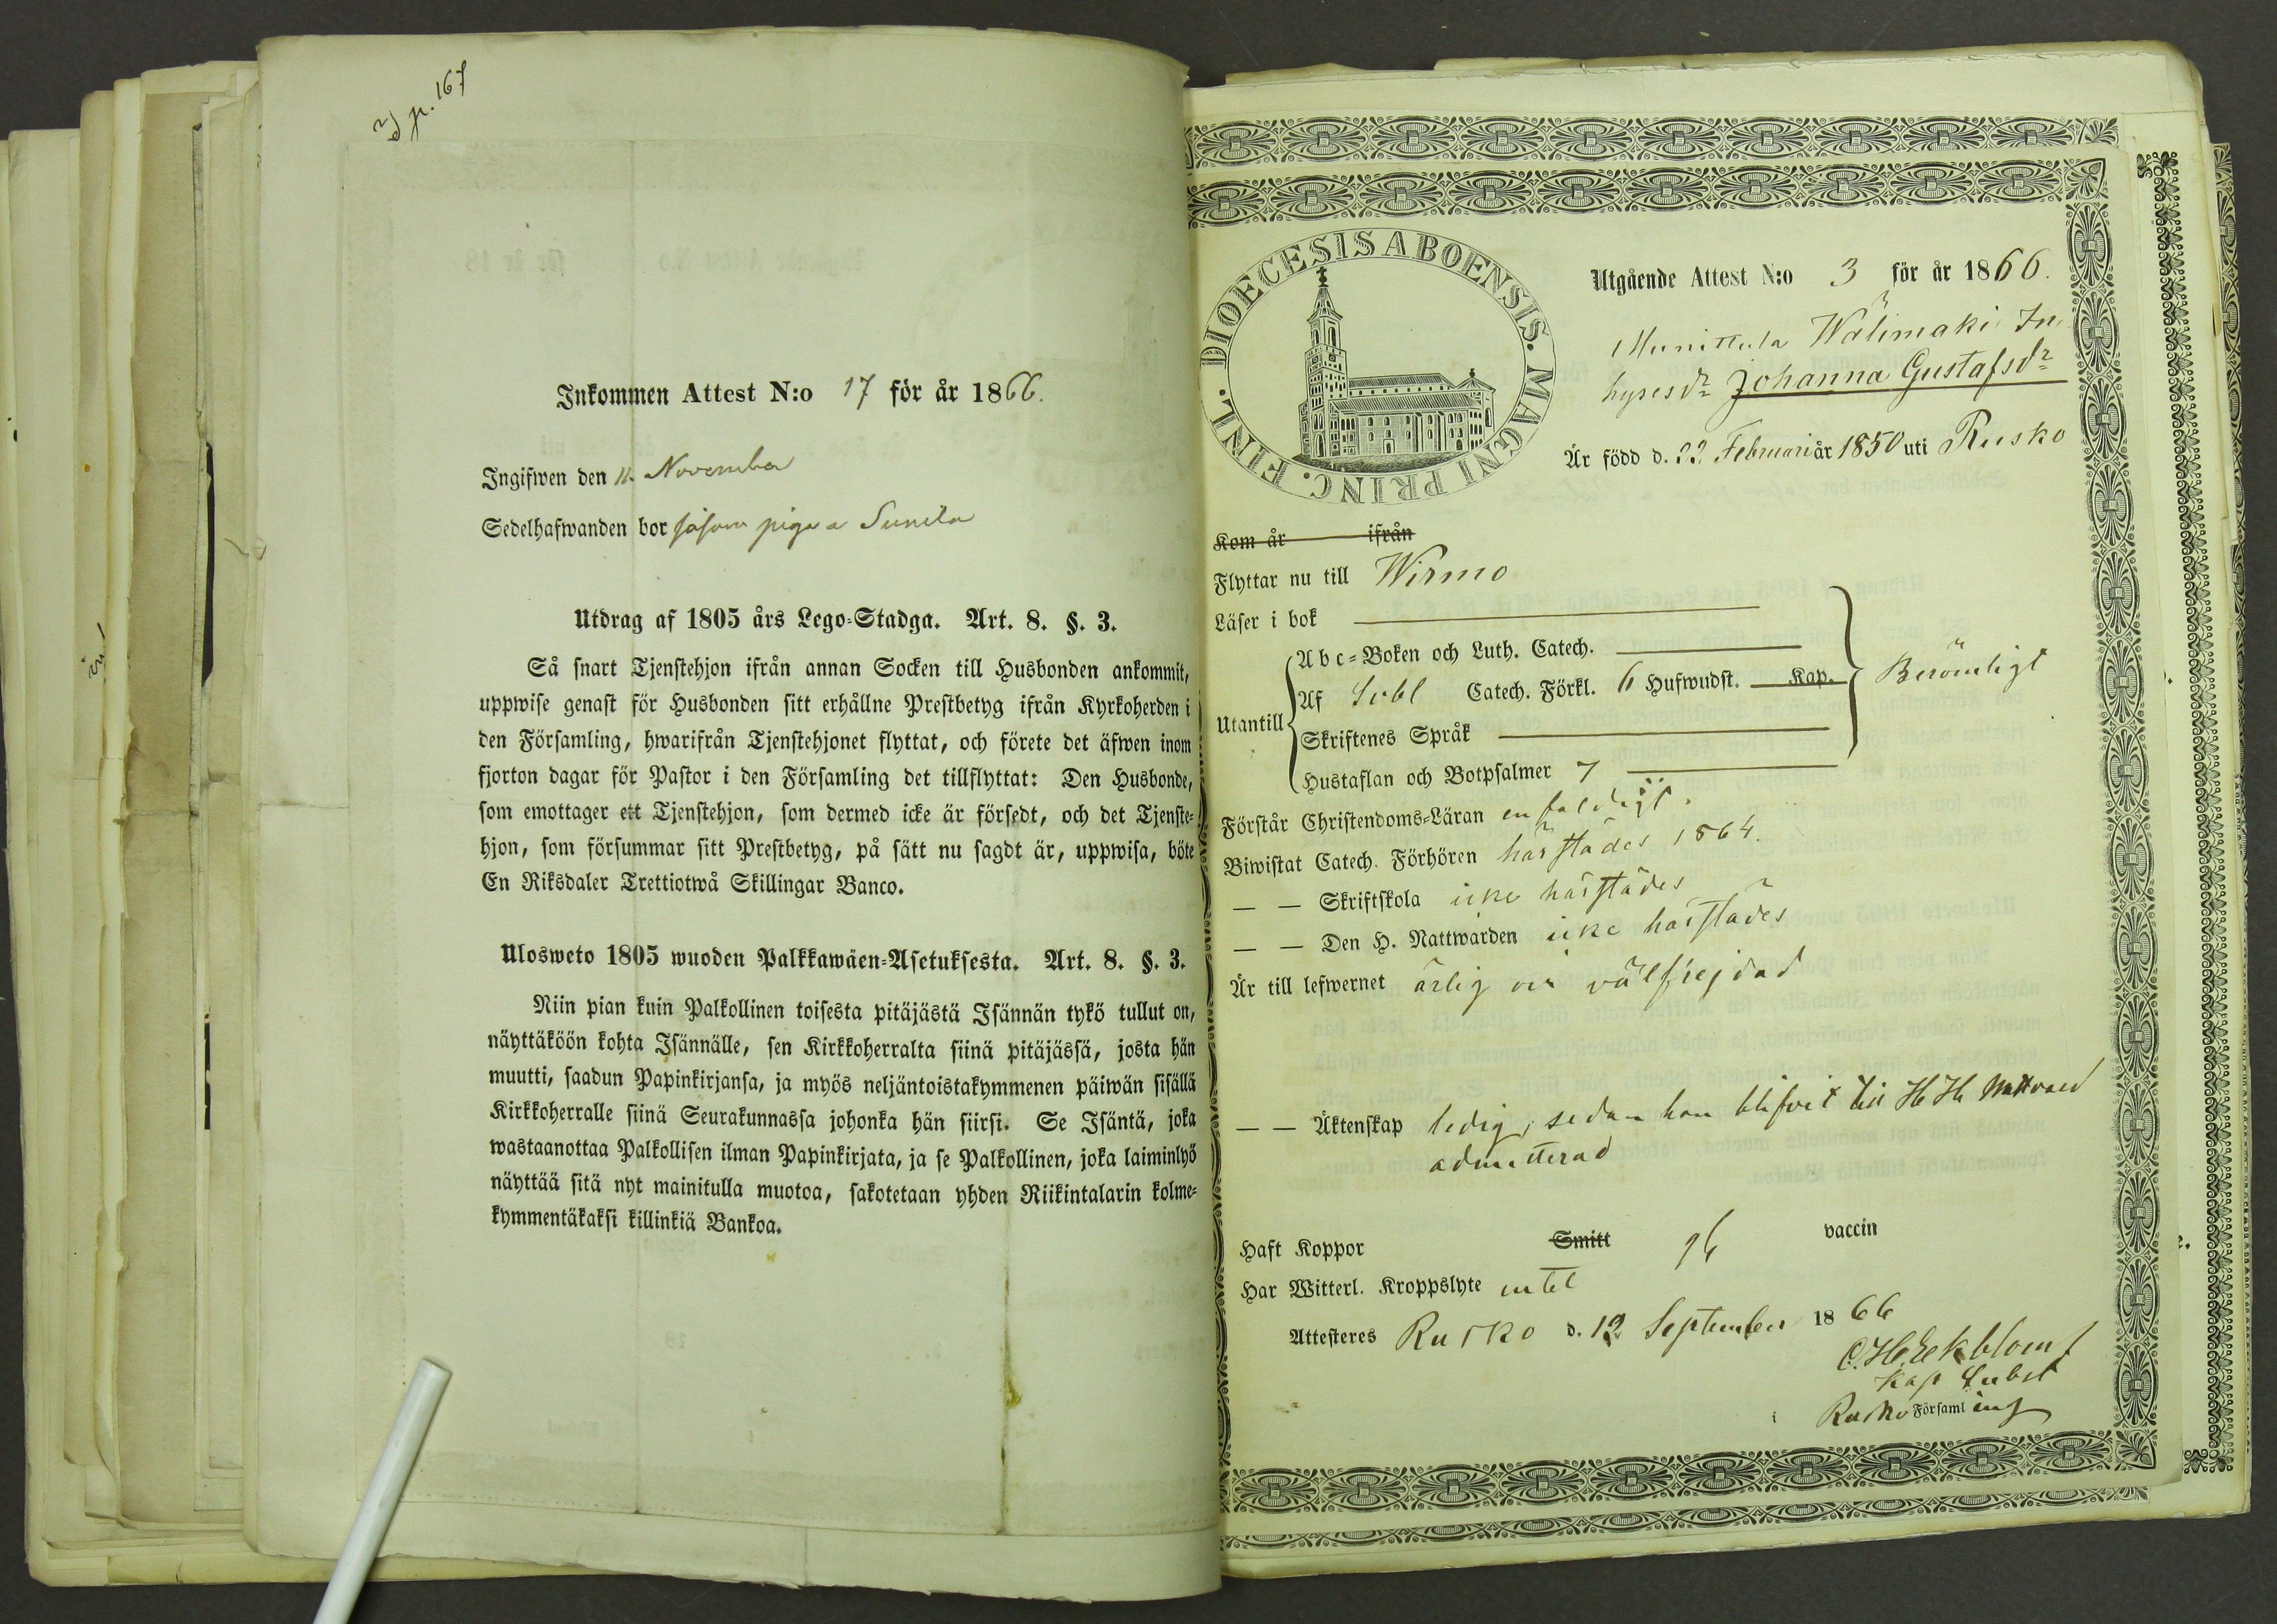 p. 167
Inkommen Attest N:o 17 för år 1866.
Ingifwen den 11. November
Sedelhafwanden bor såsom piga a Sunila
Utdrag af 1805 års Lego-Stadga. Art. 8. §. 3.
Så snart Tjenstehjon ifrån annan Socken till Husbonden ankommit,
uppwise genast för Husbonden sitt erhållne Prestbetyg ifrån Kyrkoherden i
den Församling, hwarifrån Tjenstehjonet flyttat, och förete det äfwen inom
fjorton dagar för Pastor i den Församling det tillflyttat: Den Husbonde,
som emottager ett Tjenstehjon, som dermed icke är försedt, och det Tjenste-
hjon, som försummar sitt Prestbetyg, på sätt nu sagdt är, uppwisa, böte
En Riksdaler Trettiotwå Skillingar Banco.
Ulosweto 1805 wuoden Palkkawäen-Asetuksesta. Art. 8. §. 3.
Niin pian kuin Palkollinen toisesta pitäjästä Isännän tykö tullut on,
näyttäköön kohta Isännälle, sen Kirkkoherralta siinä pitäjässä, josta hän
muutti, saadun Papinkirjansa, ja myös neljäntoistakymmenen päiwän sisällä
Kirkkoherralle siinä Seurakunnassa johonka hän siirsi. Se Isäntä, joka
wastaanottaa Palkollisen ilman Papinkirjata, ja se Palkollinen, joka laiminlyö
näyttää sitä nyt mainitulla muotoa, sakotetaan yhden Riikintalarin kolme-
kymmentäkaksi killinkiä Bankoa.
FINL. DIOECESIS ABOENSIS. MAGNI PRINC.
Utgående Attest N:o 3 för år 1866.
Munittula Wälimäki In
hyresdr Johanna Gustafsdr
Är född d. 22 Februari år 1850 uti Rusko
Kom år ifrån
Flyttar nu till Wirmo
Läser i bok
Utantill
Abc-Boken och Luth. Catech.
Af Svbl Catech. Förkl. 6 Hufwudst. Kap.
Berömligt
Skriftenes Språk
Hustaflan och Botpsalmer 7
Förstår Christendoms-Läran enfaldigt.
Biwistat Catech. Förhören härstädes 1864.
— — Skriftskola icke härstädes
— — Den H. Nattwarden icke härstädes
Är till lefwernet ärlig och välfrejdad
— — Äktenskap ledig, sedan hon blifvit till H H Nattvard
admitterad
Haft Koppor Smitt vaccin
Har Witterl. Kroppslyte intet
Attesteres Rusko d. 12 September 1866
C. H. Ekblom
Kap Subst
i Rusko Församling